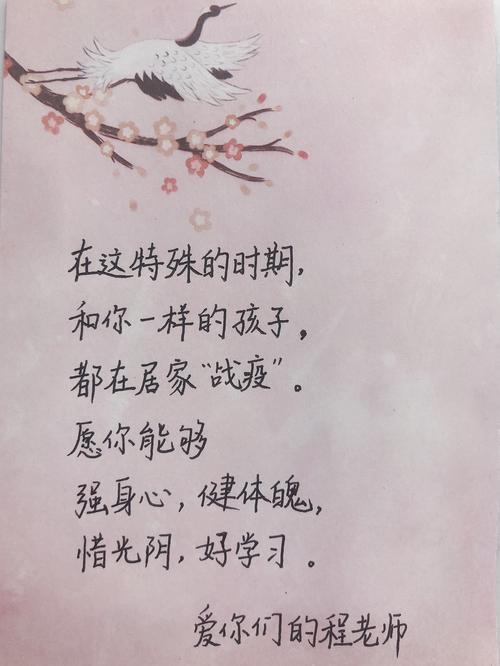 在这特殊的时期,
和你一样的孩子,
都在居家“战疫”。
愿你能够
强身心,健体魄,
惜光阴,好学习。
爱你们的程老师